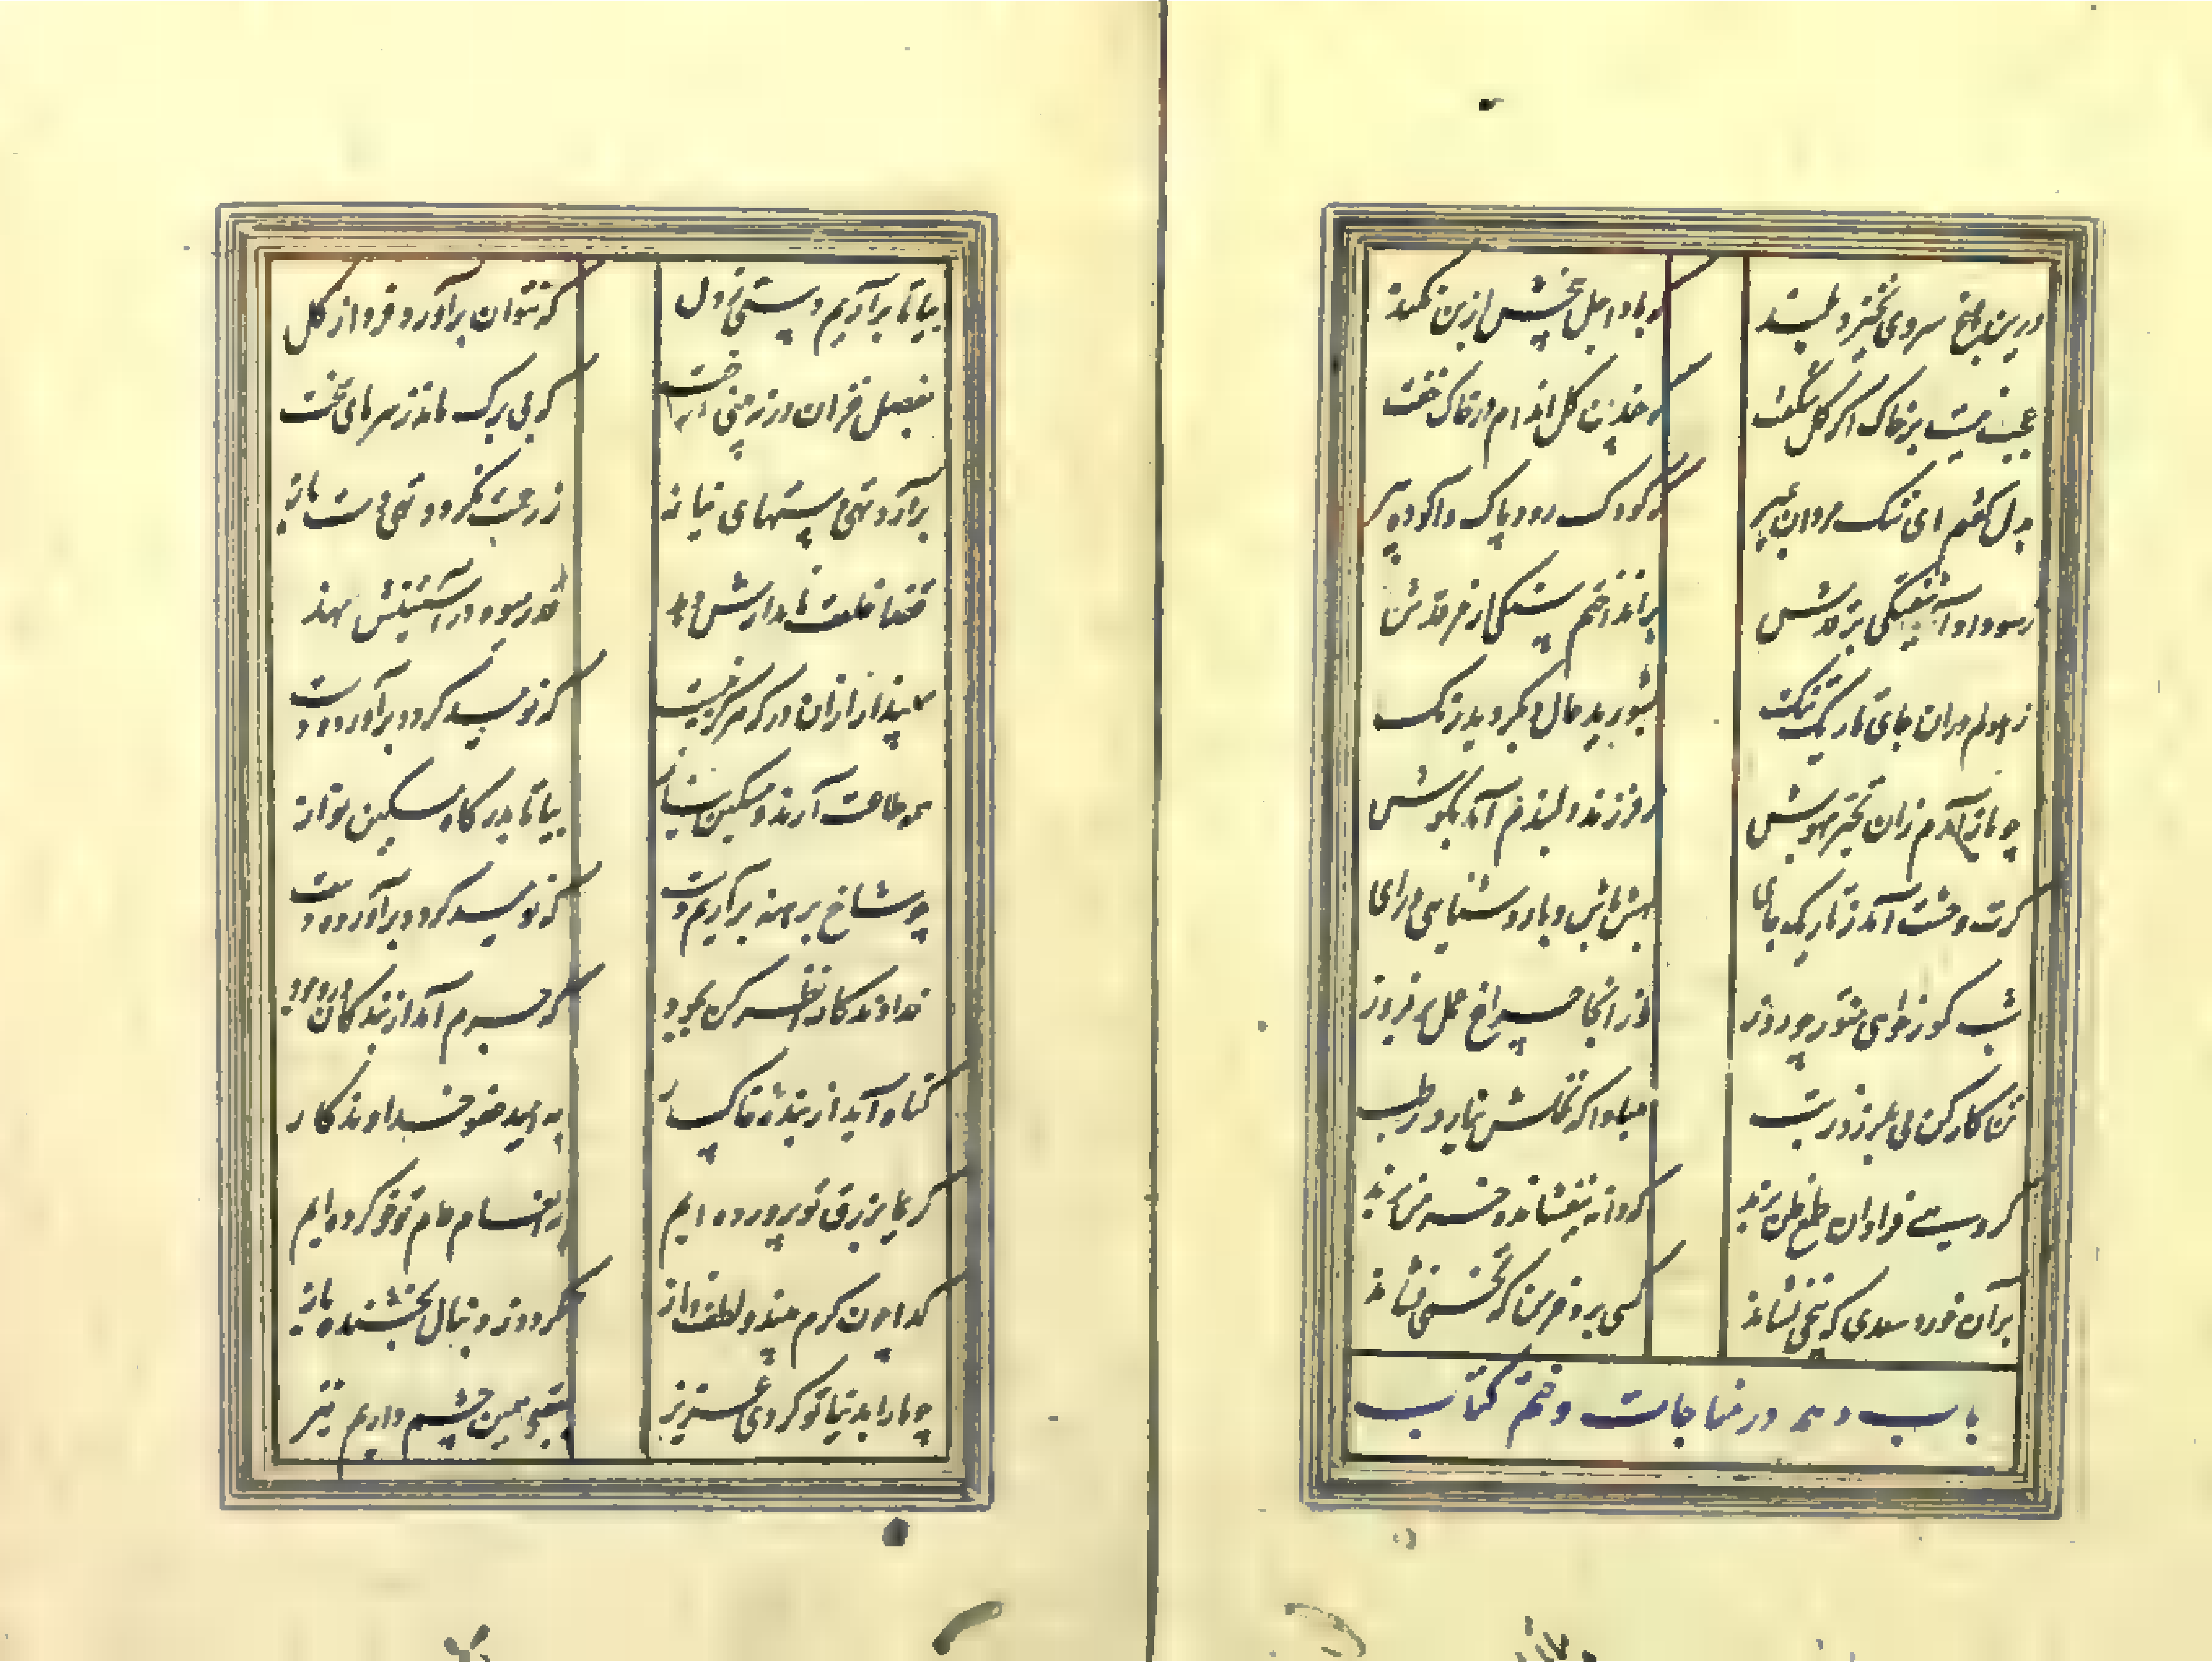 درین باغ سروی نخیزد بلند که باد اجل بیخش از بن نکند
عجب نیست بر خاک اگر گل شکفت که چندین گل اندام در خاک خفت
بدل گفتم ای ننگ مردان بمیر که کودک رود پاک و آلوده پیر
ز سودا و آشفتگی بر قدش برانداختم سنگی از مرقدش
ز هولم دران جای تاریک تنگ بشورید حال و بگردید رنگ
چو باز آمدم زان تغیر بهوش ز فرزند دلبندم آمد بگوش
گرت وحشت آمد ز تاریک جای بهش باش و با روشنایی درآی
شب گور خواهی منور چو روز از اینجا چراغ عمل برفروز
تن کارکن می بلرزد ز تب مبادا که نخلش نیارد رطب
گروهی فراوان طمع ظن برند که دانه نیفشانده خرمن برند
بر آن خورد سعدی که بیخی نشاند کسی برد خرمن که تخمی نشاند
باب دهم در مناجات و ختم کتاب
بیا تا برآریم دستی ز دل که نتوان برآورد فردا ز گل
بفصل خزان در نه بینی درخت که بی برگ ماند ز سرمای سخت
برآرد تهی دستهای نیاز ز رحمت نگردد تهی دست باز
قضا خلعت نامدارش دهد قدر میوه در آستینش نهد
مپندار از آن در که هرگز نبست که نومید گردد برآورده دست
همه طاعت آرند و مسکین نیاز بیا تا بدرگاه مسکین نواز
چو شاخ برهنه برآریم دست که نومید گردد برآورده دست
خداوندگارا نظر کن بجود که جرم آمد از بندگان در وجود
گناه آید از بنده خاکسار به امید عفو خداوندگار
کریما برزق تو پرورده ایم بانعام عام تو خو کرده ایم
گدا چون کرم بیند و لطف و ناز نگردد ز دنبال بخشنده باز
چو ما را بدنیا تو کردی عزیز بعقبی همین چشم داریم نیز